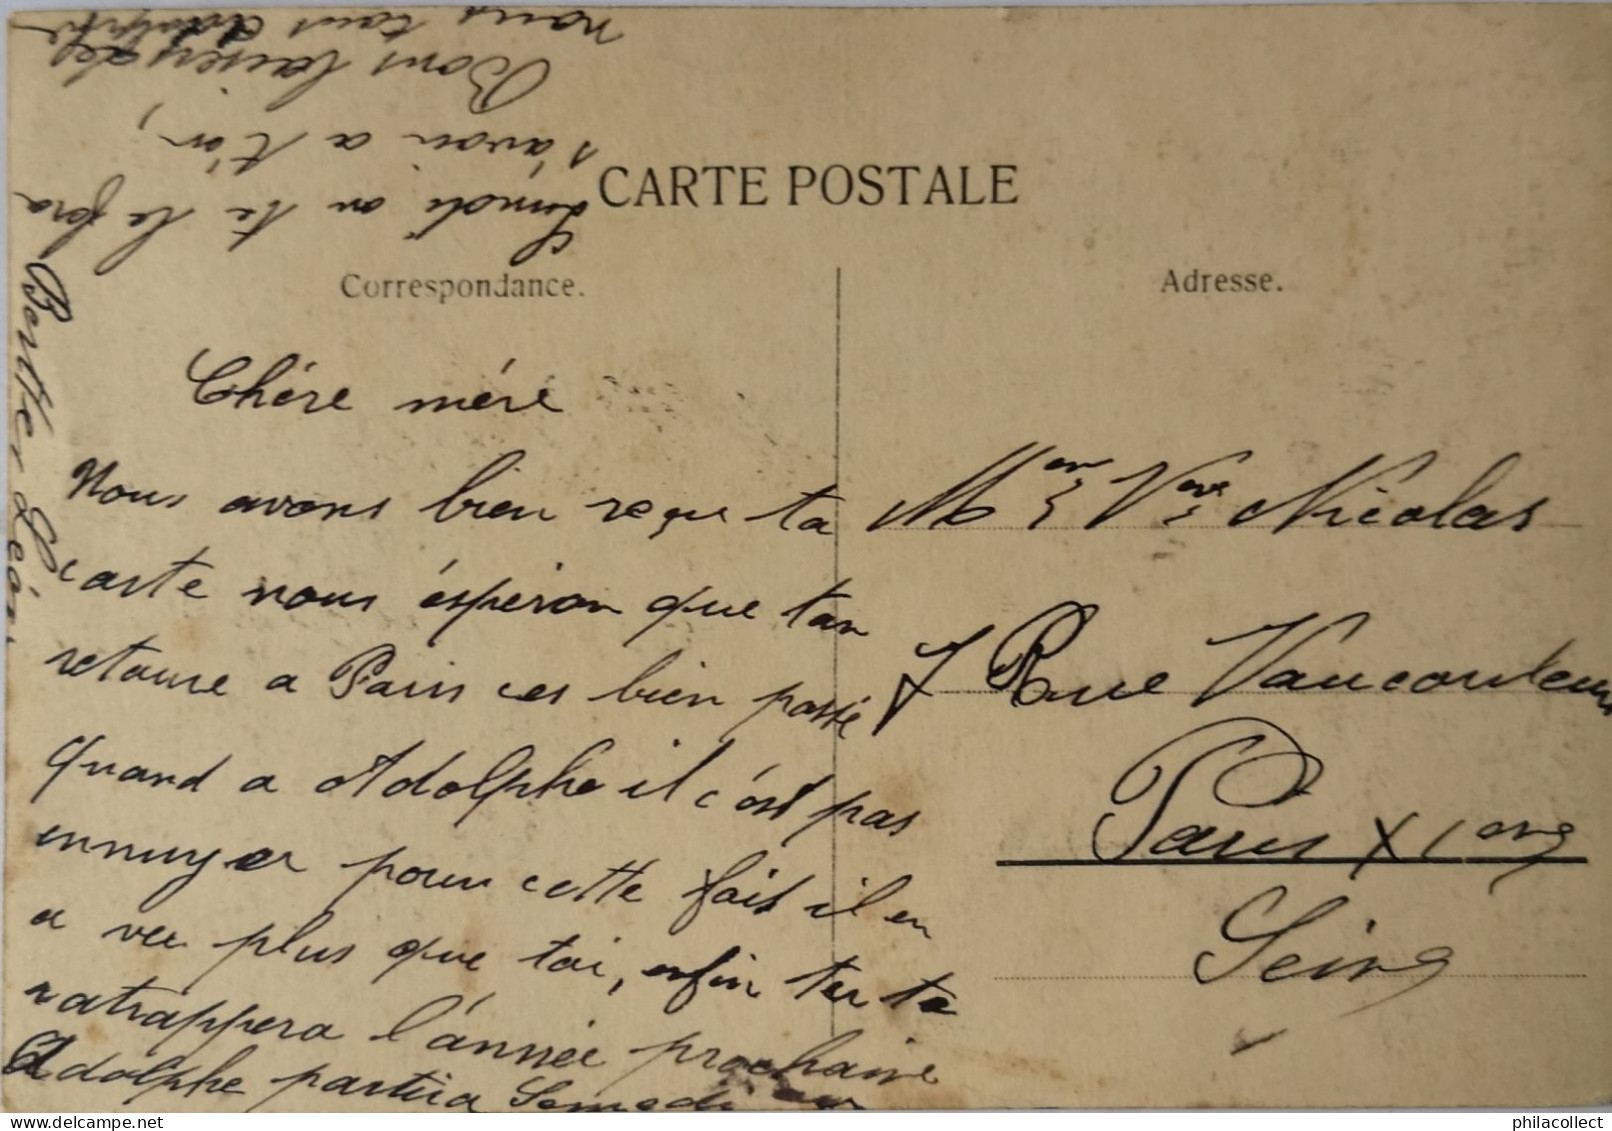 CARTE POSTALE
Correspondance.
Adresse.
Chére mére
Nous avons bien reçu ta
carte nous éspéron que ton
retoure a Paris ces bien passé
quand a Adolphe il c'est pas
ennuyer pour cette fois il en
a veu plus que toi, enfin tu te
ratrappera l'année prochaine
Adolphe partira Samedi ou
Lundi on te le fera
s'avoir a t'on
Bons baisers de
nous tous Adolphe
Berthe Léon
Mon Vve Nicolas
7 Rue Vaucouleurs
Paris XIeme
Seine
philacollect